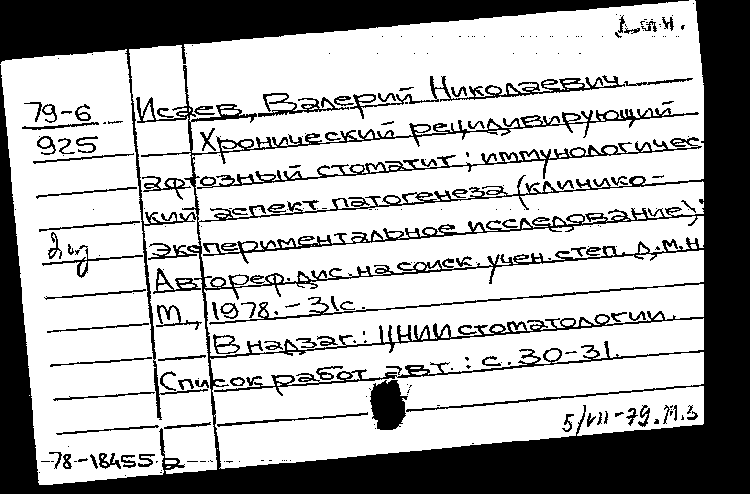 Д.м.н.
79-6 Исаев, Валерий Николаевич.
925 Хронический рецидивирующий
афтозный стоматит; иммунологичес-
кий аспект патогенеза (клинико-
экспериментальное исследование):
Автореф. дис. на соиск. учен. степ. д.м.н.
М., 1978. - 31с.
В надзаг.: ЦНИИ стоматологии.
Список работ авт.: с. 30-31.
5/VII-79. М.З
78-18455 а